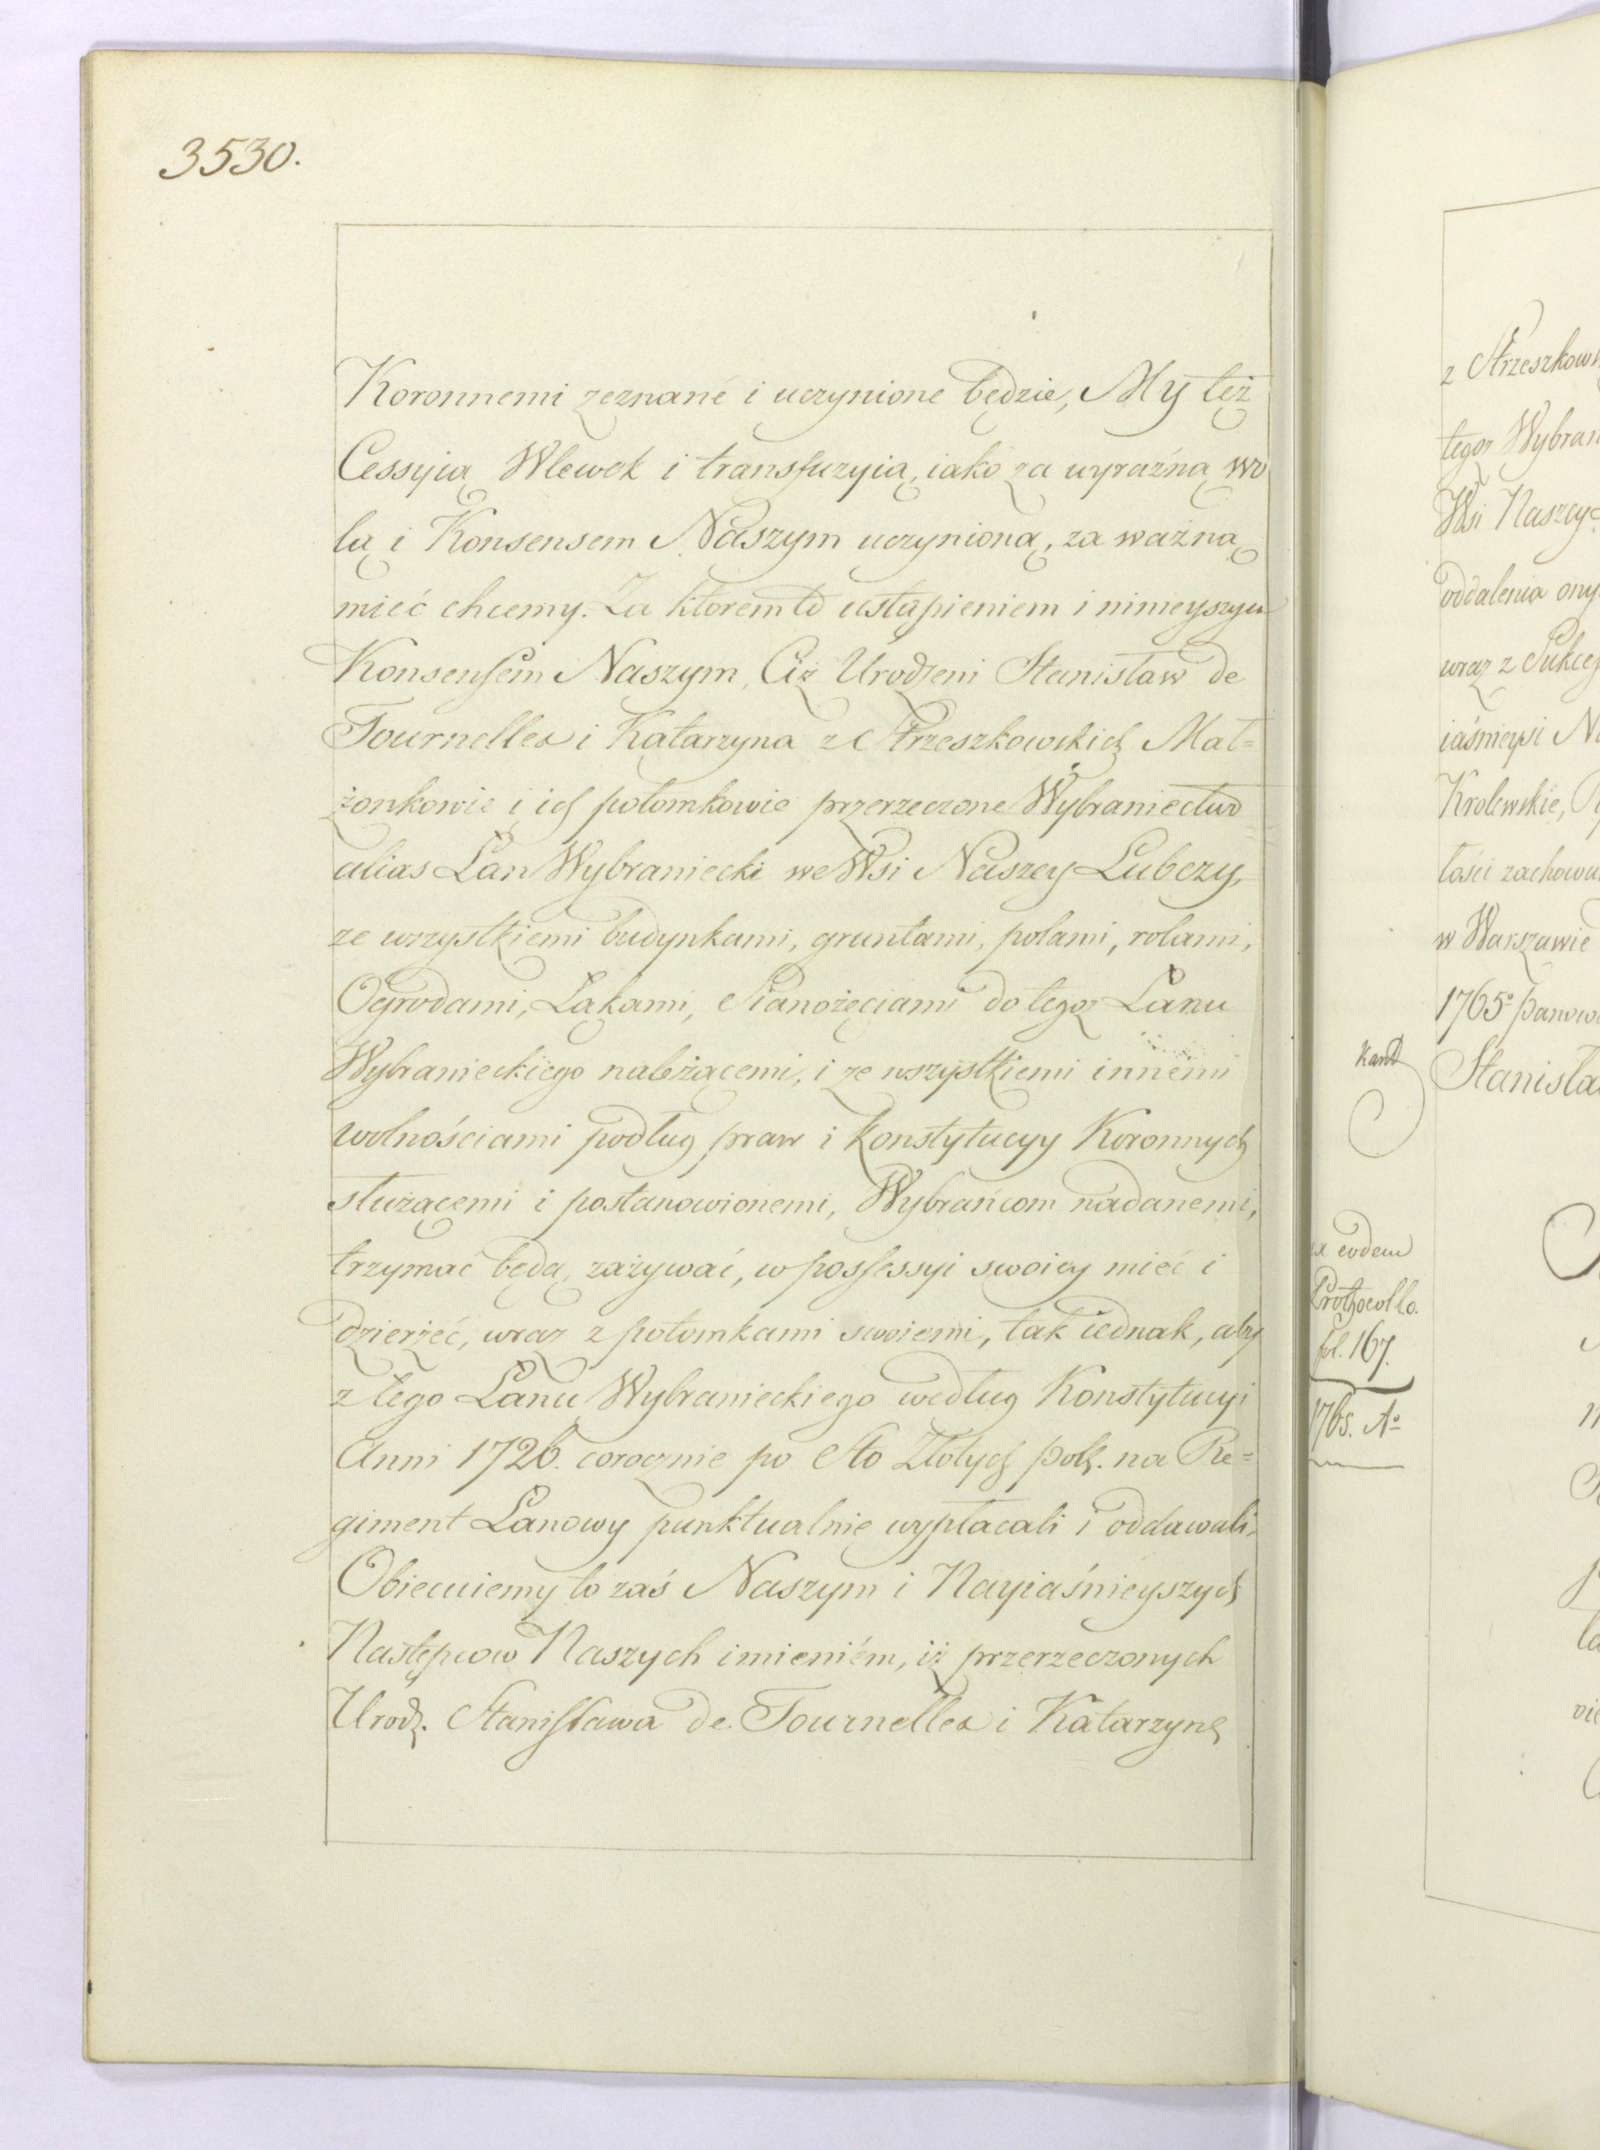 3530.
Koronnemi zeznané i uczynione będzie, My też
Cessyią Wlewek i transfuzyią, iako za wyraźną wo
lą i Konsensem Naszym uczynioną, za ważną
mieć chcemy. Za ktoremto ustąpieniem i ninieyszym
Konsensem Naszym, Ciż Urodzeni Stanisław de
Tournelles i Katarzyna z Strzeszkowskich Mał=
żonkowie i ich potomkowie przerzeczone Wybraniectwo
alias Łan Wybraniecki we Wsi Naszey Lubczy,
ze wszystkiemi budynkami, gruntami, polami, rolami,
Ogrodami, Łąkami, Sianożęciami do tegoz Łanu
Wybranieckiego należącemi, i ze wszystkiemi innemi
wolnościami podług praw i konstytucyy Koronnych
służącemi i postanowionemi, Wybrańcom nadanemi,
trzymać będą, zażywać, w possessyi swoiey mieć i
dzierżeć, wraz z potomkami swoiemi, tak iednak, aby
z tego Łanu Wybranieckiego według Konstytucyi
Anni 1726. corocznie po Sto Złotych polś. na Re=
giment Łanowy punktualnie wypłacali i oddawali,
Obiecuiemy to zaś Naszym i Nayiaśnieyszych
Następcow Naszych imieniém, iż przerzeczonych
Urodz. Stanisława de Tournelles i Katarzynę
z Strzeszkows
tegoz Wybran
Wsi Naszey
oddalenia ony
wraz z Sukces
iaśnieysi Na
Krolewskie,
łości zachowu
w Warszawie
1765º panow
Stanisła
Kand
ex eodem
Prothocollo.
fol. 167.
1765. Aº